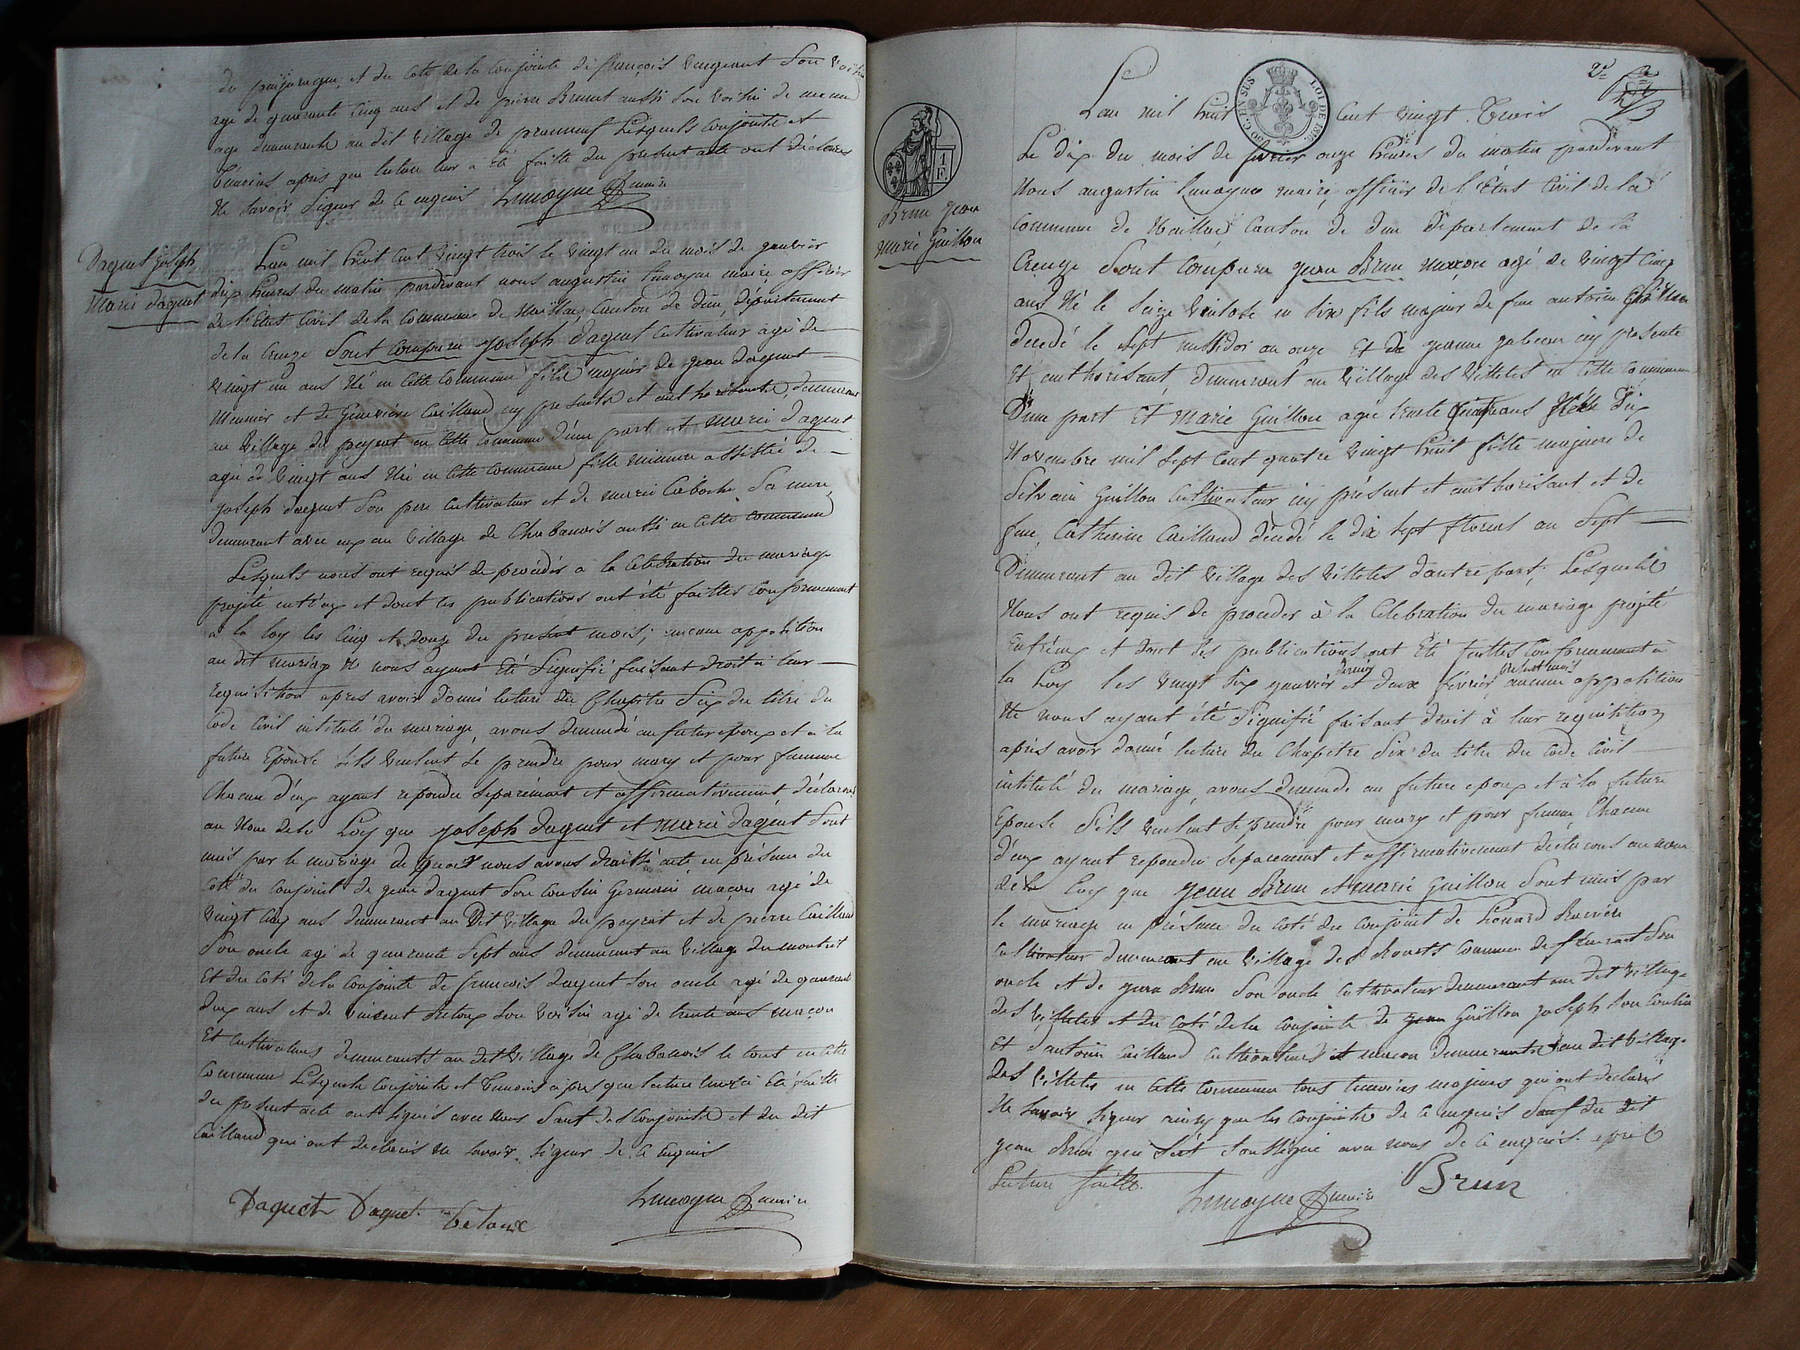 et du coté de la conjointe de françois Vergeaud son voisin
agé de quarante cinq ans et de pierre Brunet aussi son voisin de meme
age demeurants au dit village de Lesquels conjoints et
temoins apres que lecture leur a Eté faitte du present acte ont declarés
Ne savoir Signer de ce enquis Lemoyne maire
Daguet joseph
Marie daguet
Lan mil huit cent vingt trois le vingt un du mois de janvier
dix heures du matin pardevant nous augustin Lemoyne maire officier
de l'Etat Civil de la Commune de Naillac, Canton de dun, departement
de la Creuze Sont comparu joseph daguet Cultivateur agé de
vingt un ans Né en Cette Commune fils majeur de jean daguet
Meunier et de Genevieve Caillaud icy presents et authorisants, demeurant
au village du peyrat en Cette commune d'une part et Marie daguet
agée de vingt ans Née en Cette Commune fille mineure assistée de
joseph daguet Son pere Cultivateur et de marie Caboche Sa mere
demeurant avec eux au village de Chabannois aussi en Cette commune
Lesquels nous ont requis de proceder a la Celebration du mariage
projeté entr'eux et dont les publications ont été faittes conformement
a la loy les Cinq et douze du present mois; aucune opposition
au dit mariage Ne nous ayant Eté Signifié faisant droit a leur
requisition apres avoir donné lecture du Chapitre Six du titre du
Code Civil intitulé du mariage, avons demandé au futur epoux et a la
future Epouse s'ils veulent Se prendre pour mary et pour femme
Chacun d'eux ayant repondu Separement et affirmativement déclarons
au Nom de la Loy que joseph daguet et marie daguet Sont
unis par le mariage de quoi nous avons dressé acte en présence du
coté du Conjoint de jean daguet Son Cousin Germain, maçon agé de
vingt Cinq ans demeurant au Dit village du peyrat et de pierre Caillaud
Son oncle agé de quarante Sept ans demeurant au village du monteil
Et du Coté de la Conjointe de francois daguet Son oncle agé de quarante
deux ans et de vincent Son voisin agé de trente ans maçon
Et Cultivateurs demeurants au dit village de Chabannois le tout en cette
Commune Lesquels Conjoints et temoins apres que lecture leur a Eté faitte
du present acte ont signés avec nous Sauf des Conjointe et du dit
Caillaud qui ont declarés Ne savoir Signer de ce Enquis
Daguet Daguet Betoux Lemoyne maire
2e
LOI DE 1816
1 F
Brun jean
Marie Guillon
Lan mil huit Cent vingt Trois
Le dix du mois de fevrier onze heures du matin pardevant
Nous augustin Lemoyne maire, officier de l'Etat Civil de la
Commune de Naillac Canton de dun département de la
Creuze Sont Comparu jean Brun Macon agé de vingt Cinq
ans Né le Seize Ventose an Six fils majeur de feu antoine
decedé le Sept messidor an onze Et de jeanne icy presente
Et authorisant, demeurant au village des Villetes en Cette Commune
D'une part Et Marie Guillon agée trente quatre ans Née le Dix
Novembre mil Sept Cent quatre vingt huit fille majeure de
Silvain Guillon Cultivateur icy présent et authorisant et de
feue, Catherine Caillaud décedé le dix Sept floreal an Sept
Demeurant au dit village des Villetes d'autre part; Lesquels
Nous ont requis de proceder à la Celebration du mariage projeté
Entr'eux et dont les publications ont Eté faittes conformement à
la Loy les vingt Six janvier dernier et deux février présent mois aucune opposition
Ne nous ayant été Signifié faisant droit à leur requisition
après avoir donné lecture du Chapitre Six du titre du Code Civil
intitulé du mariage, avons demandé au future epoux et à la future
Epouse S'ils veulent Se prendre pour mary et pour femme, Chacun
d'eux ayant repondu Separement et affirmativement déclarons au nom
de la Loy que jean Brun et marie Guillon Sont unis par
le mariage en présence du Coté du Conjoint de Léonard
Cultivateur demeurant au village des commune de Son
oncle et de jean Brun Son oncle Cultivateur demeurant au dit village
des Villetes et du Coté de la Conjointe de Guillon joseph Son Cousin
Et d'antoine Caillaud Cultivateurs et macon demeurants au dit village
des Villetes en Cette Commune tous temoins majeurs qui ont declarés
Ne savoir Signer ainsy que les Conjoints de ce enquis Sauf du dit
jean Brun qui S'est Soussigné avec nous de ce enquis après
Lecture faitte. Lemoyne maire Brun